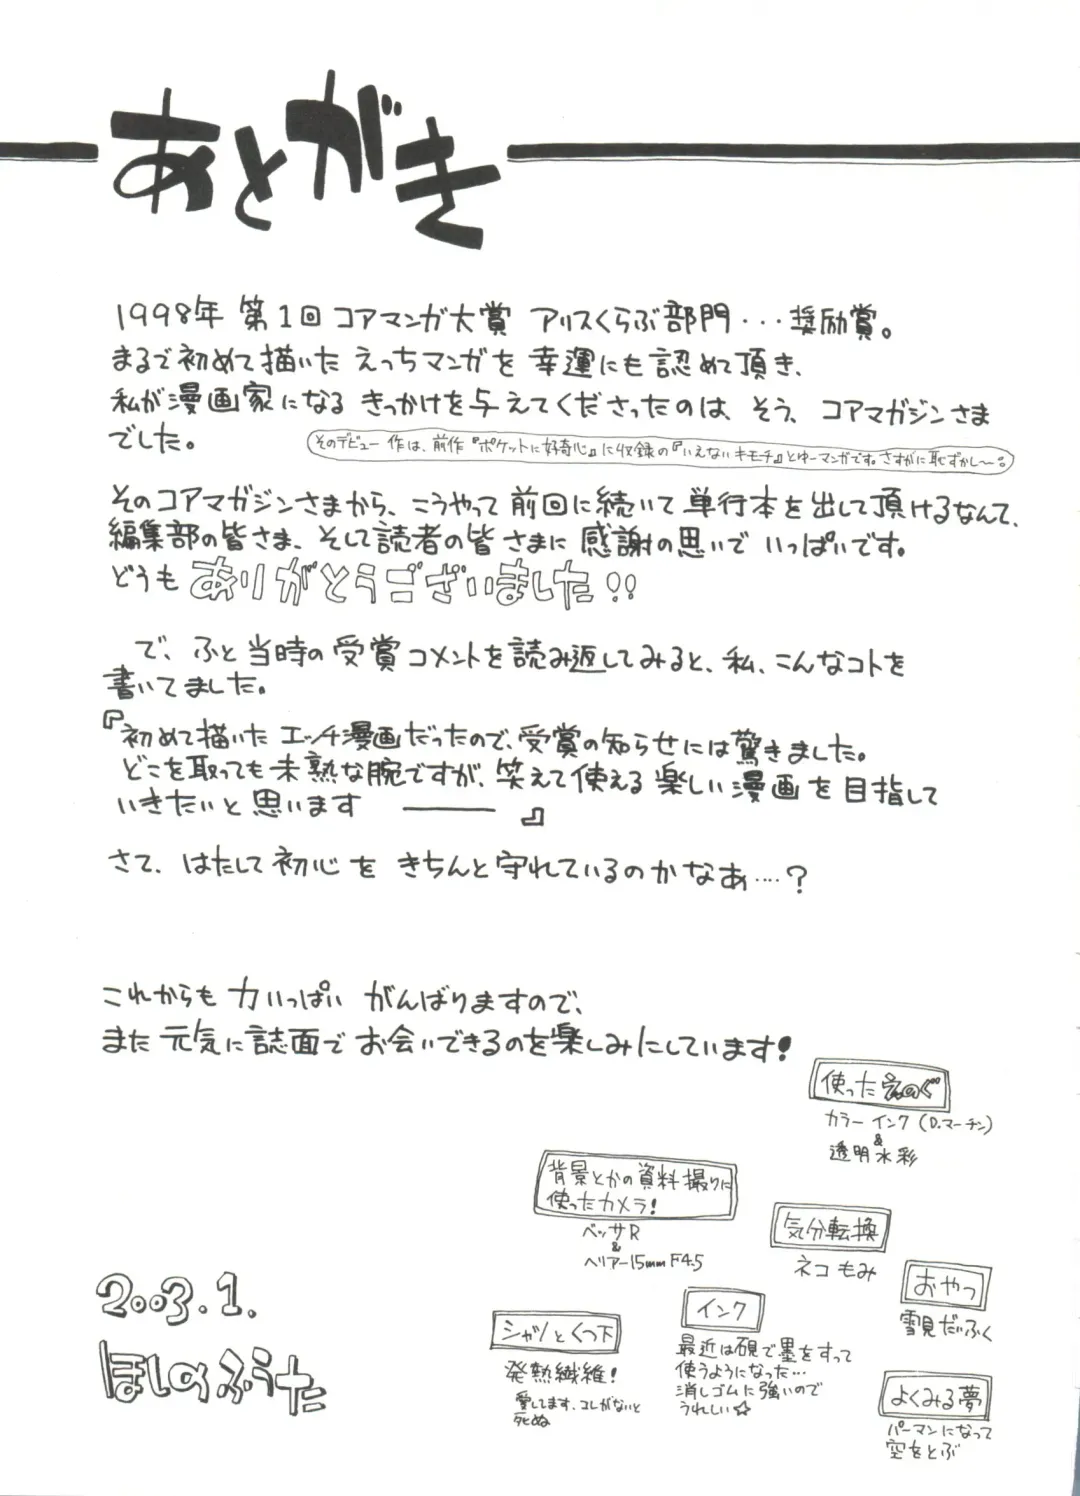 あとがき
1998年 第1回 コアマンガ大賞 アリスくらぶ部門・・・奨励賞。
まるで初めて描いた えっちマンガを 幸運にも認めて頂き、
私が漫画家になる きっかけを与えてくださったのは、そう、コアマガジンさま
でした。
そのデビュー作は、前作『ポケットに好奇心』に収録の『いえないキモチ』とゆーマンガです。さすがに恥ずかし〜。
そのコアマガジンさまから、こうやって前回に続いて単行本を出して頂けるなんて、
編集部の皆さま、そして読者の皆さまに 感謝の思いで いっぱいです。
どうも ありがとうございました!!
で、ふと当時の受賞コメントを読み返してみると、私、こんなコトを
書いてました。
『初めて描いた エッチ漫画だったので、受賞の知らせには驚きました。
どこを取っても未熟な腕ですが、笑えて使える楽しい漫画を目指して
いきたいと思います ―――』
さて、はたして初心を きちんと守れているのかなあ….?
これからも 力いっぱい がんばりますので、
また元気に誌面で お会いできるのを楽しみにしています!
使ったえのぐ
カラーインク(D.マーチン)
&
透明水彩
背景とかの資料撮りに
使ったカメラ!
ベッサR
&
ヘリアー15mm F4.5
気分転換
ネコもみ
おやつ
雪見だいふく
インク
最近は硯で墨をすって
使うようになった…
消しゴムに強いので
うれしい☆
シャツとくつ下
発熱繊維!
愛してます。コレがないと
死ぬ
よくみる夢
パーマンになって
空をとぶ
2003.1.
ほしのふうた